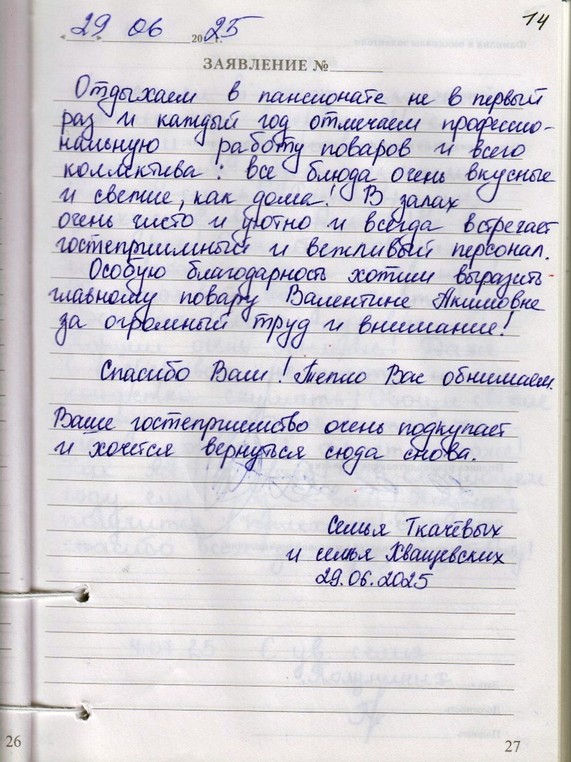 14
29 06 2025 г.
ЗАЯВЛЕНИЕ №
Отдыхаем в пансионате не в первый
раз и каждый год отмечаем профессио-
нальную работу поваров и всего
коллектива: все блюда очень вкусные
и свежие, как дома! В залах
очень чисто и уютно и всегда встречает
гостеприимный и вежливый персонал.
Особую благодарность хотим выразить
главному повару Валентине Акимовне
за огромный труд и внимание!
Спасибо Вам! Тепло Вас обнимаем.
Ваше гостеприимство очень подкупает
и хочется вернуться сюда снова.
Семья Ткачёвых
и семья Хващевских
29.06.2025
26
27